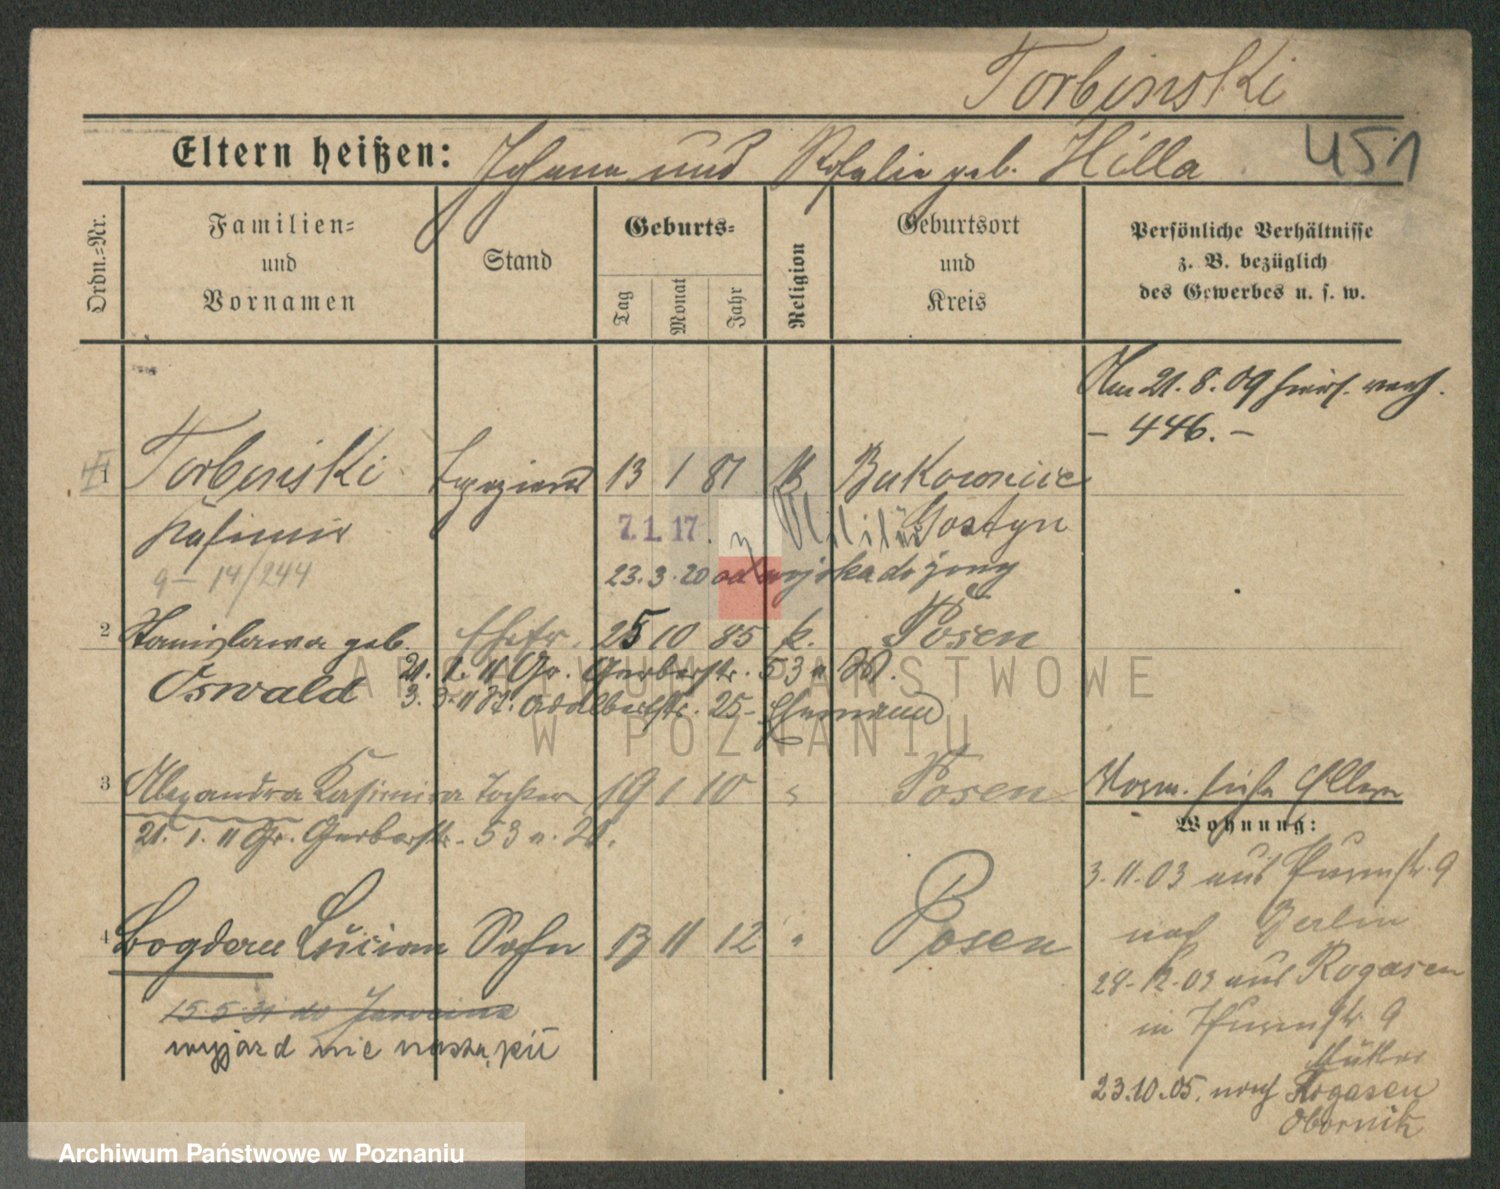 Torbinski
451
Eltern heißen: Johann und Rosalie geb. Hilla
Ordn.-Nr.
Familien-
und
Vornamen
Stand
Geburts-
Tag
Monat
Jahr
Religion
Geburtsort
und
Kreis
Persönliche Verhältnisse
z. B. bezüglich
des Gewerbes u. s. w.
Am 21.8.09
- 446. -
1 Torbinski 13 1 81 k Bukownice
Kasimir Gostyn
7. 1. 17. z. Militär
9 - 14/244
23.3.20 od wojska do żony
2 Stanislawa geb. Ehefr. 25 10 85 k. Posen
Oswald
21. 1. 11 Gr. Gerberstr. 53 n. 21.
3. 3. 11 St. Adalbertstr. 25 - Ehemann
3 Alexandra Kasimira Tochter 19 1 10 " Posen
21. 1. 11 Gr. Gerberstr. 53 n. 21.
Vorm. siehe Eltern
Wohnung:
4 Bogdan Lucian Sohn 13 11 12 " Posen
15.5.31 do Jarocina
wyjazd nie nastąpił
3.11.03 aus Thurmstr. 9
nach Berlin
28.12.03 aus Rogasen
in Thurmstr. 9
Mutter
23.10.05. nach Rogasen
Obornik
ARCHIWUM PAŃSTWOWE
W POZNANIU
Archiwum Państwowe w Poznaniu